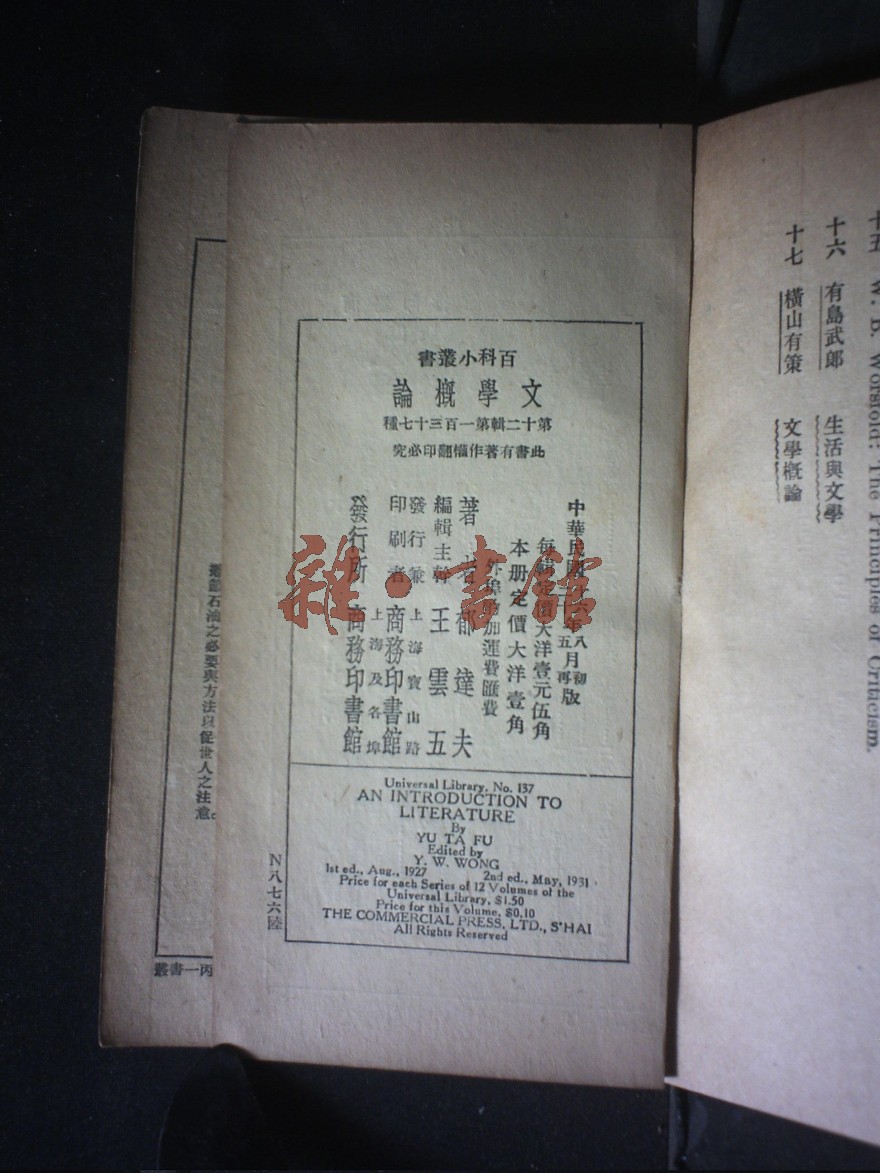 十六 有島武郎 生活與文學
十七 橫山有策 文學概論
The Principles of Criticism.
百科小叢書
文學概論
第十二輯第一百三十七種
此書有著作權翻印必究
中華民國
年八月初版
五 再
每輯定價大洋壹元伍角
本册定價大洋壹角
外埠酌加運費匯費
著者 郁達夫
編輯主幹 王雲五
發行兼印刷者 上海寶山路 商務印書館
發行所 上海及各埠 商務印書館
Universal Library, No. 137
AN INTRODUCTION TO
LITERATURE
By
YU TA FU
Edited by
Y. W. WONG
1st ed., Aug., 1927 2nd ed., May, 1931
Price for each Series of 12 Volumes of the
Universal Library, $1.50
Price for this Volume, $0.10
THE COMMERCIAL PRESS, LTD., S'HAI
All Rights Reserved
N八七六陸
石油之必要與方法以促世人之注意。
丙一書叢
雜·書館